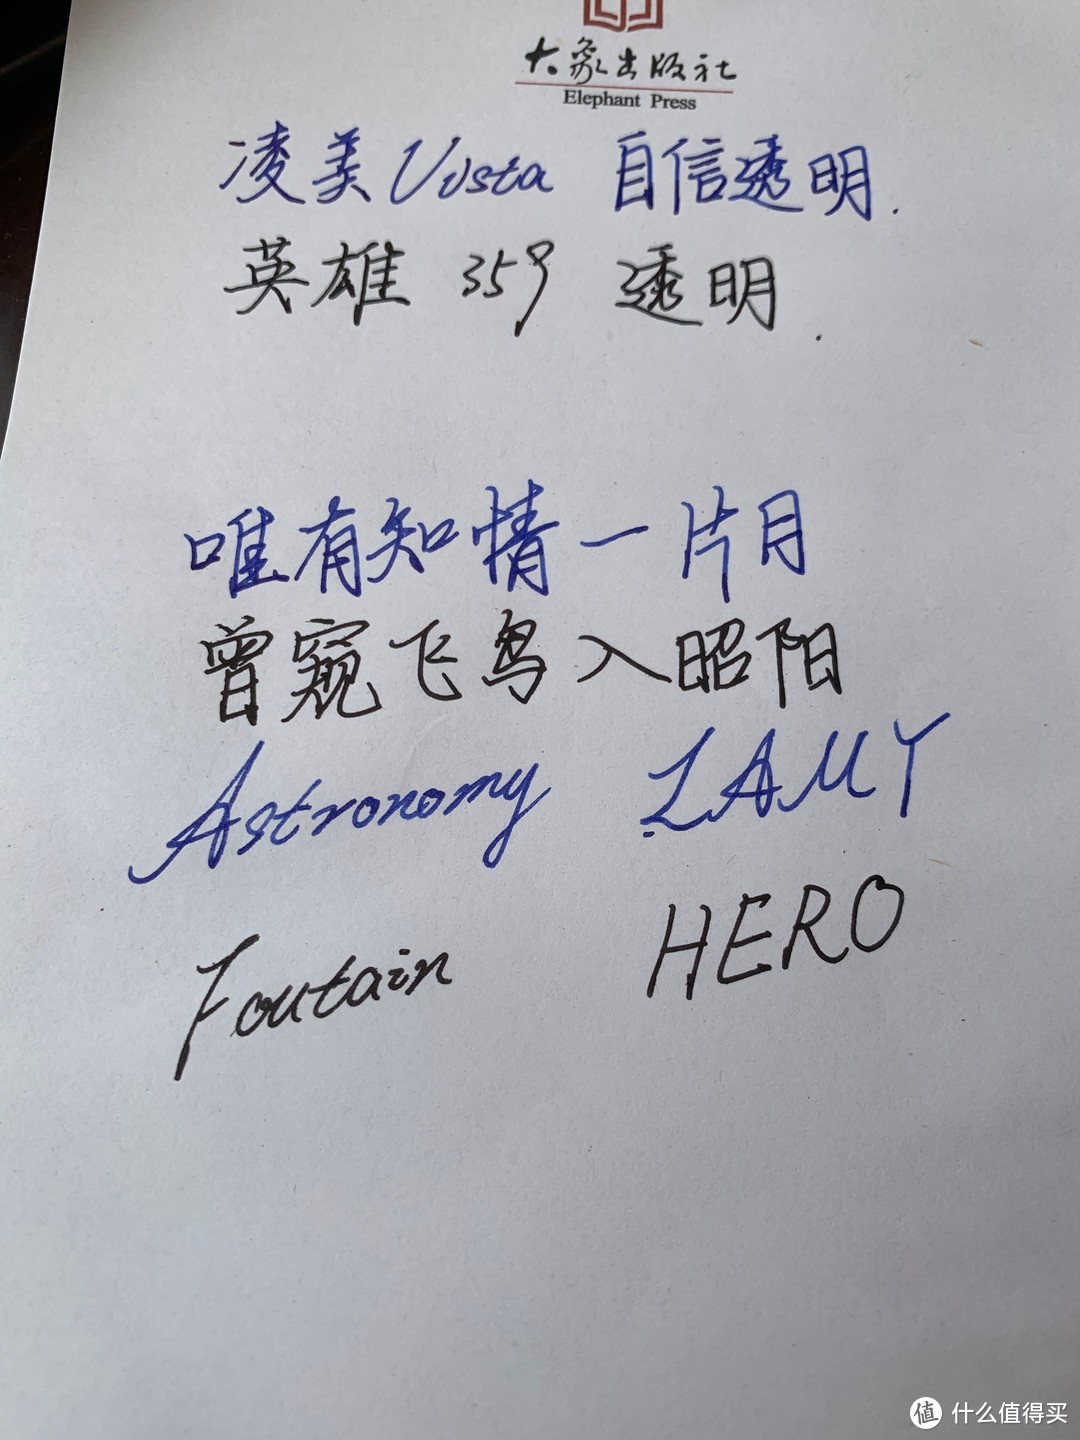 大象出版社
Elephant Press
凌美 Vista 自信透明.
英雄 359 透明.
唯有知情一片月
曾窥飞鸟入昭阳
Astronomy LAMY
Foutain HERO
值 什么值得买